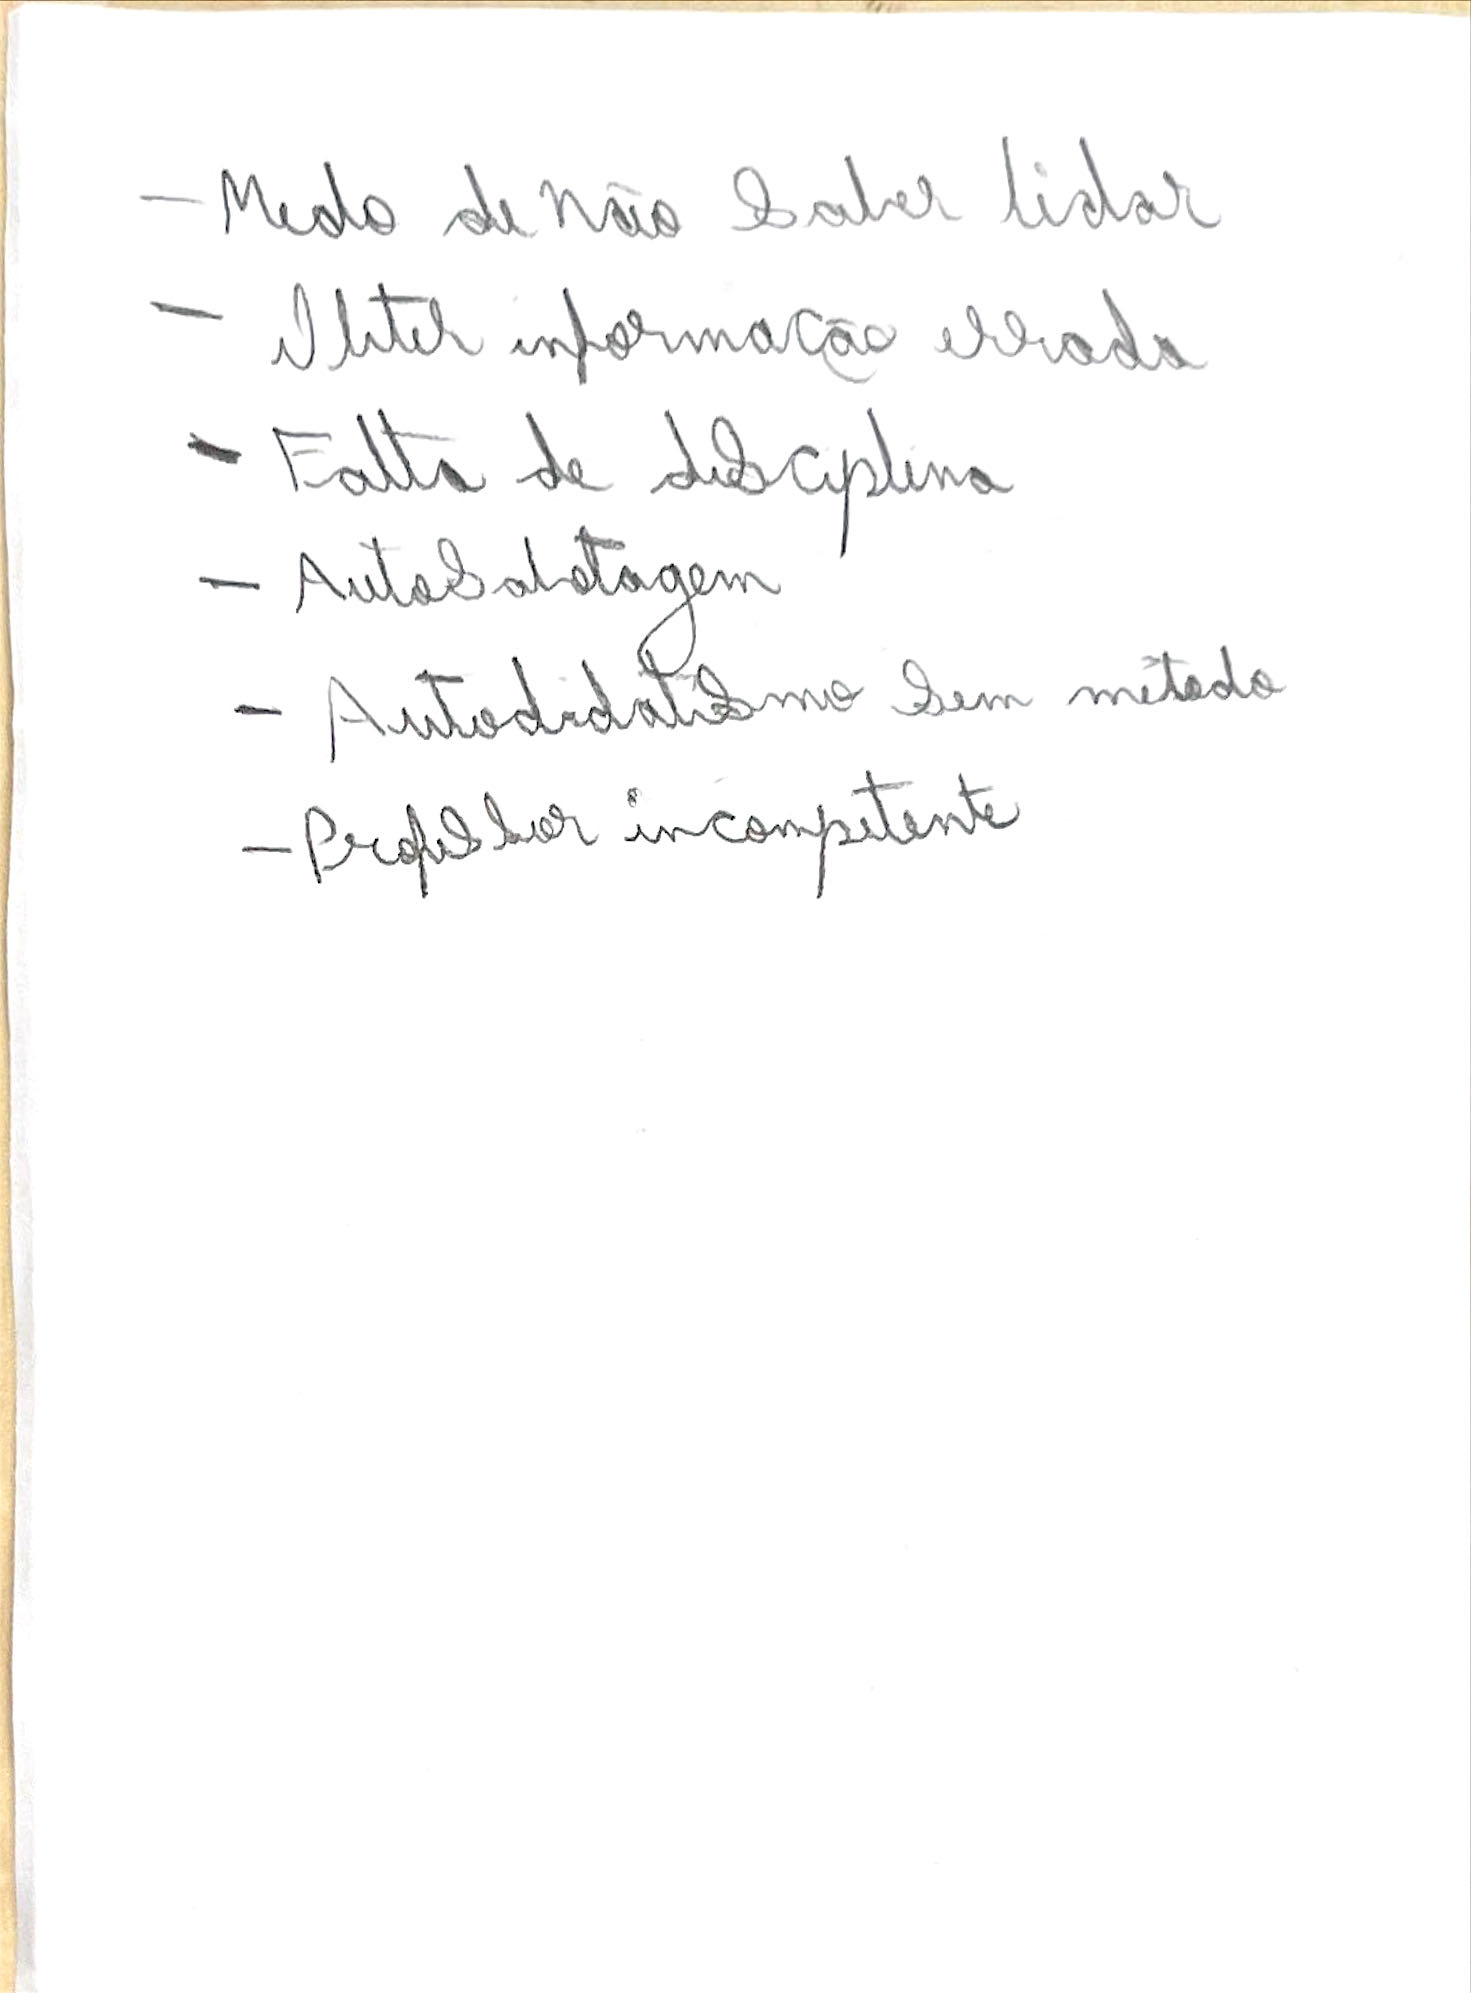 - Medo de não saber lidar
- Obter informação errada
- Falta de disciplina
- Autosabotagem
- Autodidatismo sem método
- Professor incompetente